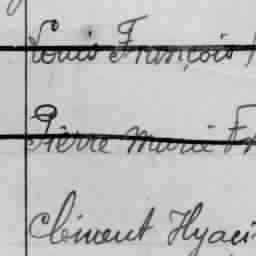 Louis François
Pierre Marie Fr
Clément Hyaci